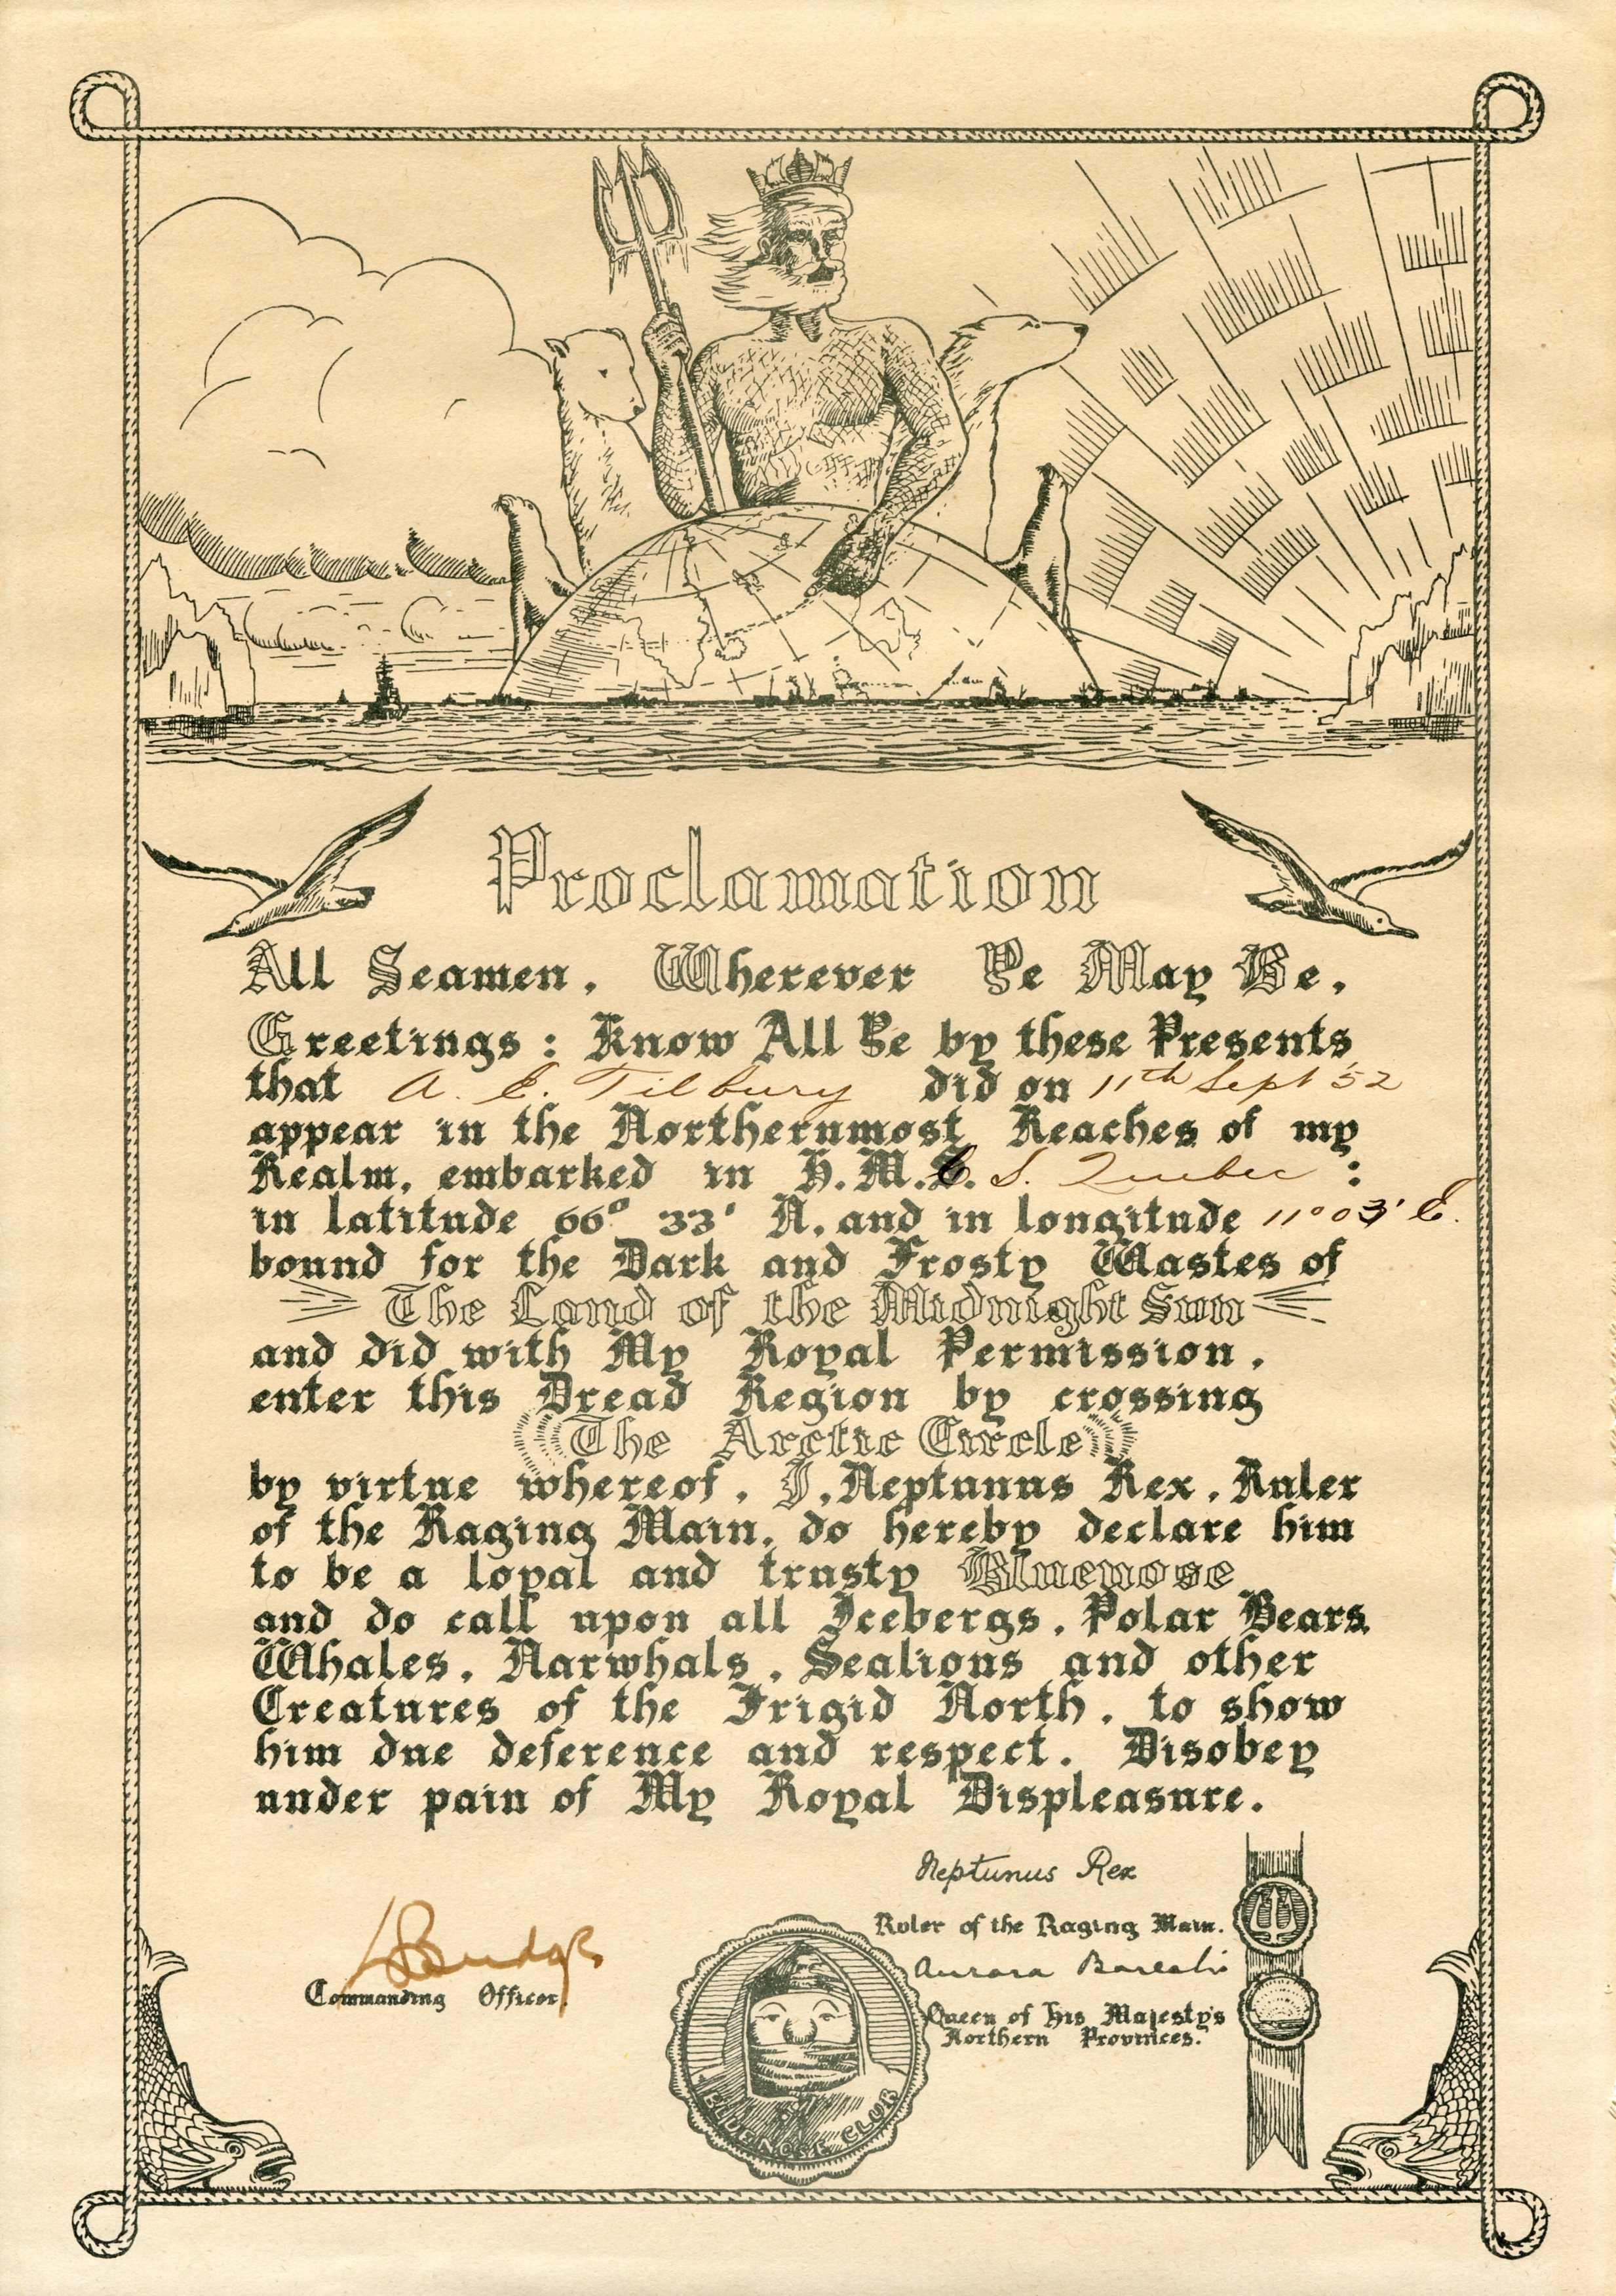 Proclamation
All Seamen, Wherever Ye May Be,
Greetings: Know All Ye by these Presents
that A. E. Tilbury did on 11th Sept '52
appear in the Northernmost Reaches of my
Realm, embarked in H.M.C.S. Quebec :
in latitude 66° 33' N. and in longitude 11° 03' E.
bound for the Dark and Frosty Wastes of
The Land of the Midnight Sun
and did with My Royal Permission,
enter this Dread Region by crossing
The Arctic Circle
by virtue whereof, I, Neptunus Rex, Ruler
of the Raging Main, do hereby declare him
to be a loyal and trusty Bluenose
and do call upon all Icebergs, Polar Bears,
Whales, Narwhals, Sealions and other
Creatures of the Frigid North, to show
him due deference and respect. Disobey
under pain of My Royal Displeasure.
Neptunus Rex
Ruler of the Raging Main.
Aurora Borealis
Queen of His Majesty's
Northern Provinces.
Commanding Officer.
BLUENOSE CLUB